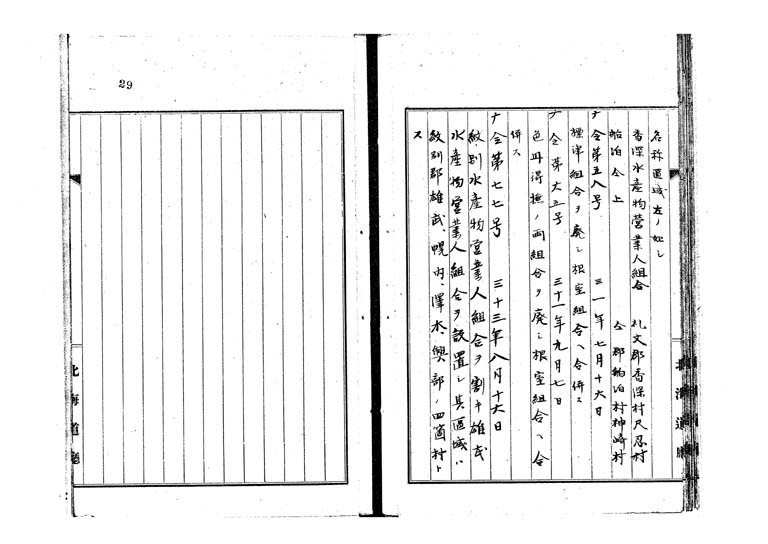 名称區域左ノ如シ
香深水産物営業人組合 礼文郡香深村尺忍村
船泊仝上 仝郡船泊村神崎村
ナ令第五八号 三一年七月十六日
標津組合ヲ廃シ根室組合ヘ合併ス
ナ令第六三号 三十一年九月七日
色丹得撫ノ両組合ヲ廃シ根室組合ヘ合
併ス
ナ令第七七号 三十三年八月十六日
紋別水産物営業人組合ヲ割キ雄武
水産物営業人組合ヲ設置シ其區域ハ
紋別郡雄武、幌内、澤木、興部ノ四箇村ト
ス
29
北海道廳